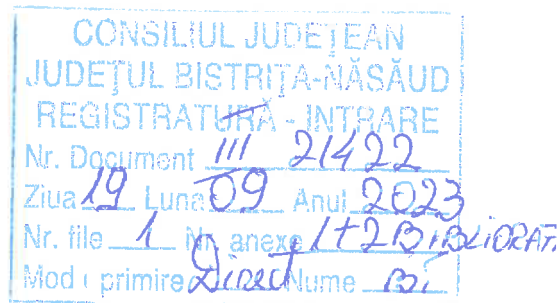 CONSILIUL JUDEŢEAN
JUDEŢUL BISTRIŢA-NĂSĂUD
REGISTRATURĂ - INTRARE
Nr. Document III 21422
Ziua 19 Luna 09 Anul 2023
Nr. file 1 Nr. anexe 1+2 BIBLIORAFT
Mod primire Direct Nume